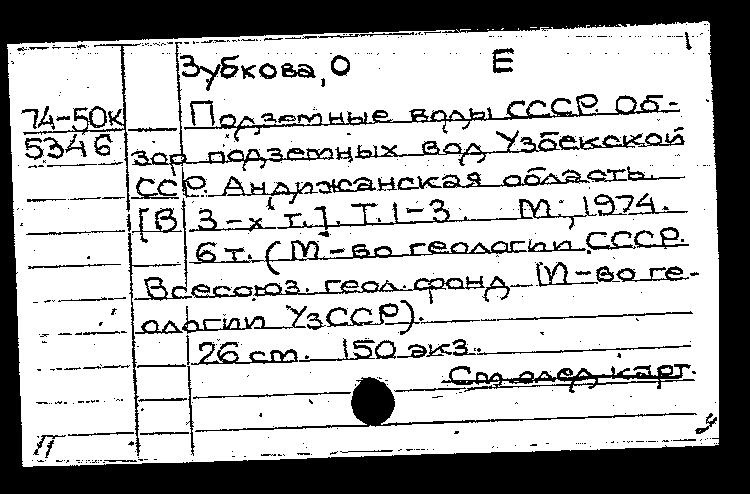 Зубкова, О Е
74-50к
5346
Подземные воды СССР. Об-
зор подземных вод Узбекской
ССР. Андижанская область.
[В 3-х т.]. Т. 1-3. М., 1974.
6 т. (М-во геологии СССР.
Всесоюз. геол. фонд. М-во ге-
ологии УзССР).
26 см. 150 экз.
См след. карт.
11